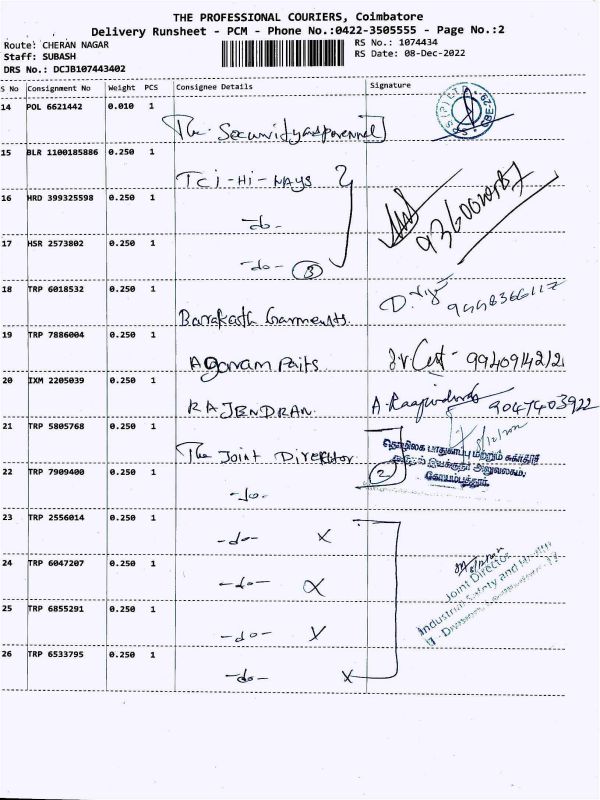 THE PROFESSIONAL COURIERS, Coimbatore
Delivery Runsheet - PCM - Phone No.:0422-3505555 - Page No.:2
Route: CHERAN NAGAR
RS No.: 1074434
Staff: SUBASH
RS Date: 08-Dec-2022
DRS No.: DCJB107443402
S No Consignment No Weight PCS Consignee Details Signature
14 POL 6621442 0.010 1
The
15 BLR 1100185886 0.250 1
TCI-HI-WAYS
16 HRD 399325598 0.250 1
-do-
17 HSR 2573802 0.250 1
-do- 3
18 TRP 6018532 0.250 1
Garments. 9448366117
19 TRP 7886004 0.250 1
9940914212
20 IXM 2205039 0.250 1
RAJENDRAN 9047403922
21 TRP 5805768 0.250 1
The Joint Direktor
தொழிலக பாதுகாப்பு மற்றும்
22 TRP 7909400 0.250 1
-do- 2
கோயம்புத்தூர்.
23 TRP 2556014 0.250 1
-do- X
24 TRP 6047207 0.250 1
-do- X
Joint Director
Industrial Safety and Health
25 TRP 6855291 0.250 1
-do- X
26 TRP 6533795 0.250 1
-do- X